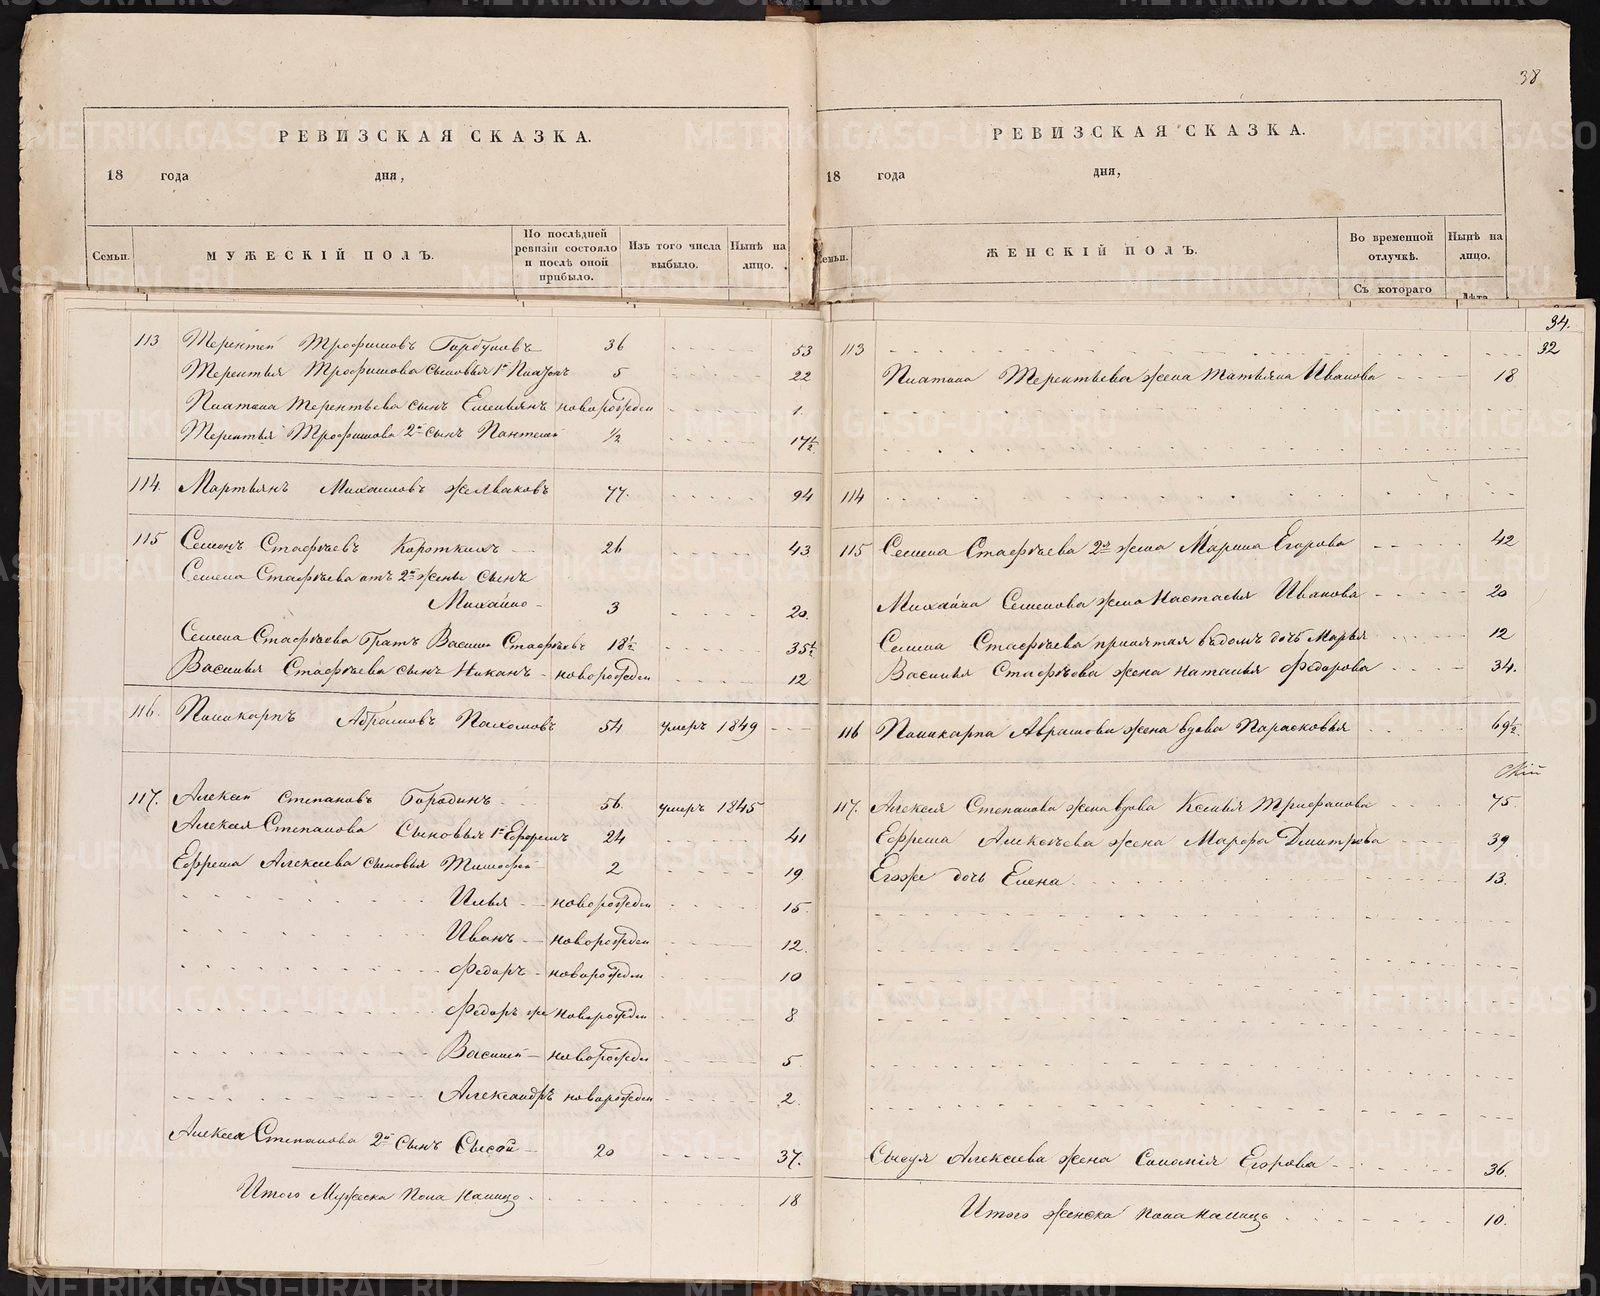 38
РЕВИЗСКАЯ СКАЗКА.
18 года дня,
Семьи.
МУЖЕСКІЙ ПОЛЪ.
По послѣдней ревизіи состояло и послѣ оной прибыло.
Изъ того числа выбыло.
Нынѣ на лицо.
113 Терентей Трофимовъ Горбуновъ 36 53
Терентья Трофимова сыновья 1й Платонъ 5 22
Платона Терентьева сынъ Емельянъ новорожден 1.
Терентья Трофимова 2й сынъ Пантелей 1/2 17 1/2
114. Мартьянъ Михаиловъ Желваковъ 77. 94
115 Семенъ Стафѣевъ Короткихъ 26 43
Семена Стафѣева отъ 2й жены сынъ
Михайло 3 20.
Семена Стафѣева братъ Василий Стафѣевъ 18 1/2 35 1/2
Василья Стафѣева сынъ Никанъ новорожден 12
116. Поликарпъ Абрамовъ Пахомовъ 54 умеръ 1849
117. Алексей Степановъ Бородинъ 56. умеръ 1845
Алексея Степанова Сыновья 1й Ефремъ 24 41
Ефрема Алексеева сыновья Тимофей 2 19
Илья новорожден 15.
Иванъ новорожден 12.
Федоръ новорожден 10
Федоръ же новорожден 8
Василей новорожден 5
Александръ новорожден 2.
Алексея Степанова 2й Сынъ Сысой 20 37.
Итого Мужеска Пола налицо 18
РЕВИЗСКАЯ СКАЗКА.
18 года дня,
Семьи.
ЖЕНСКІЙ ПОЛЪ.
Во временной отлучкѣ.
Нынѣ на лицо.
Съ котораго
Лѣта
34.
113 32
Платона Терентьева жена Татьяна Иванова 18
114
115 Семена Стафѣева 2я жена Марина Егорова 42
Михайла Семенова жена Настасья Иванова 20
Семена Стафѣева принятая въ домъ дочь Марья 12
Василья Стафѣева жена Наталья Федорова 34.
116 Поликарпа Аврамова жена вдова Парасковья 69 1/2
117. Алексея Степанова жена вдова Ксенья Трифанова 75
Ефрема Алексѣева жена Марфа Дмитрева 39
Егоже дочь Елена 13.
Сысуя Алексеева жена Саломія Егорова 36.
Итого женска пола налицо 10.
METRIKI.GASO-URAL.RU